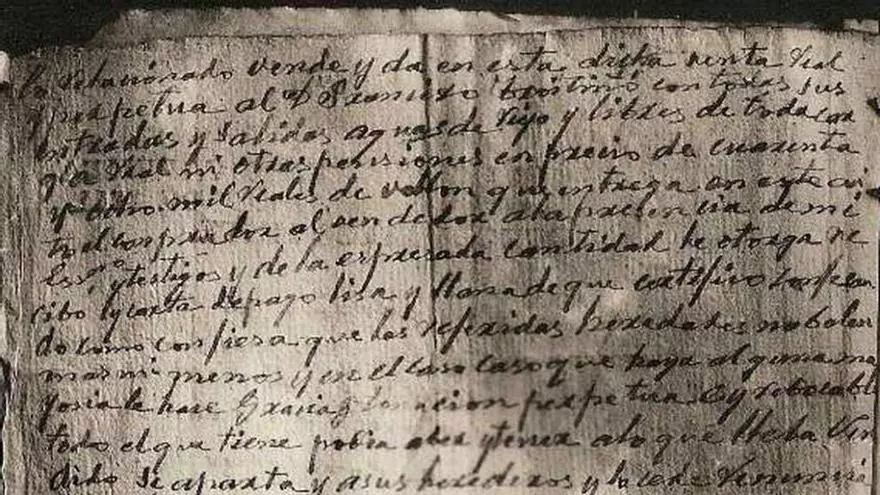 lo relacionado vende y da en esta dicha venta Real
y perpetua al D. Francisco con todas sus
entradas y Salidas aguas de Riego y libres de toda car
ga Real ni otras pensiones en precio de cuarenta
y ocho mil Reales de vellon que entrega en este ac
to el conprador al vendedor a la presencia de mi
Essno. y testigos y de la espresada cantidad le otorga re
cibo y carta de pago lisa y llana de que certifico confesan
do como confiesa que las referidas heredades no balen
mas ni menos y en el caso caso que haya alguna ma
yoria le hace Gracia y donacion perpetua e yrebocable
todo el que tiene podia aber y tener a lo que lleba Ven
dido Se aparta y a sus herederos y lo cede Renuncia